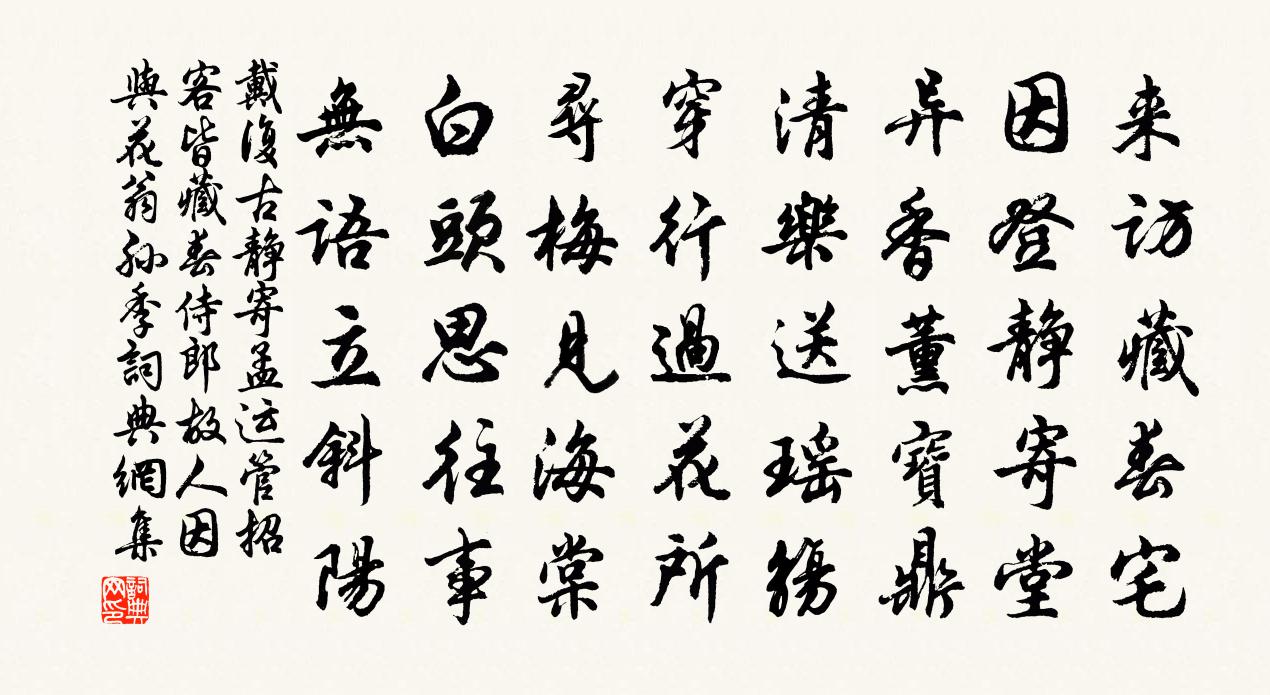 来访藏春宅
因登静寄堂
异香薰寶鼎
清樂送瑶觴
穿行過花所
尋梅見海棠
白頭思往事
無語立斜陽
戴復古靜寄孟运管招
客皆藏春侍郎故人因
與花翁孙季詞典網集
詞典網印